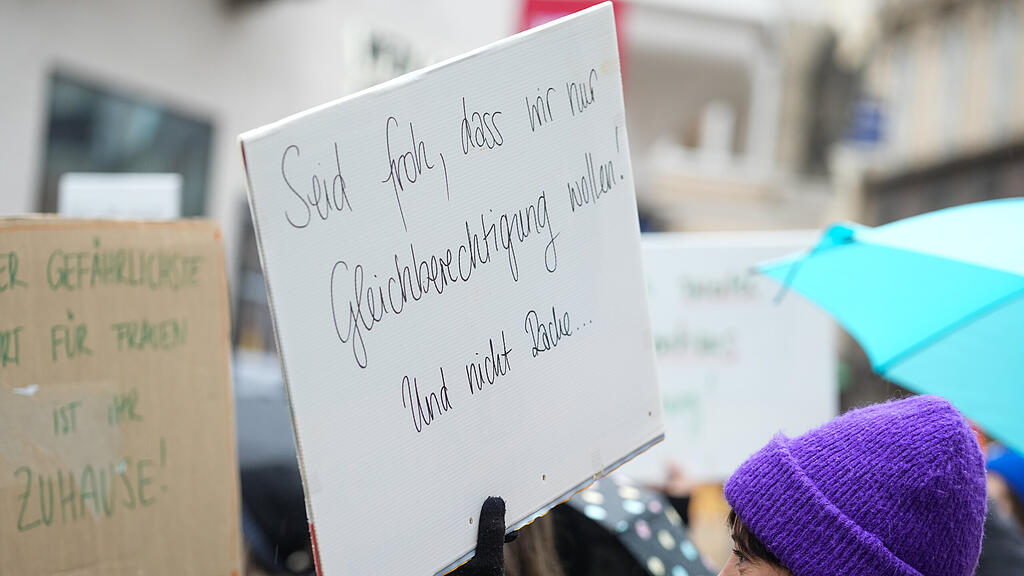 Seid froh, dass wir nur
Gleichberechtigung wollen!
Und nicht Rache...
GEFÄHRLICHSTE
FÜR FRAUEN
IST IHR
ZUHAUSE!